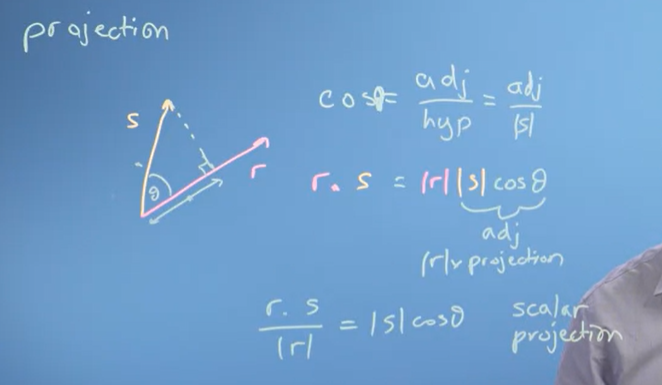 projection
s
θ
r
cosθ = adj/hyp = adj/|s|
r. s = |r||s|cosθ
adj
|r|x projection
r. s/|r| = |s|cosθ scalar
projection